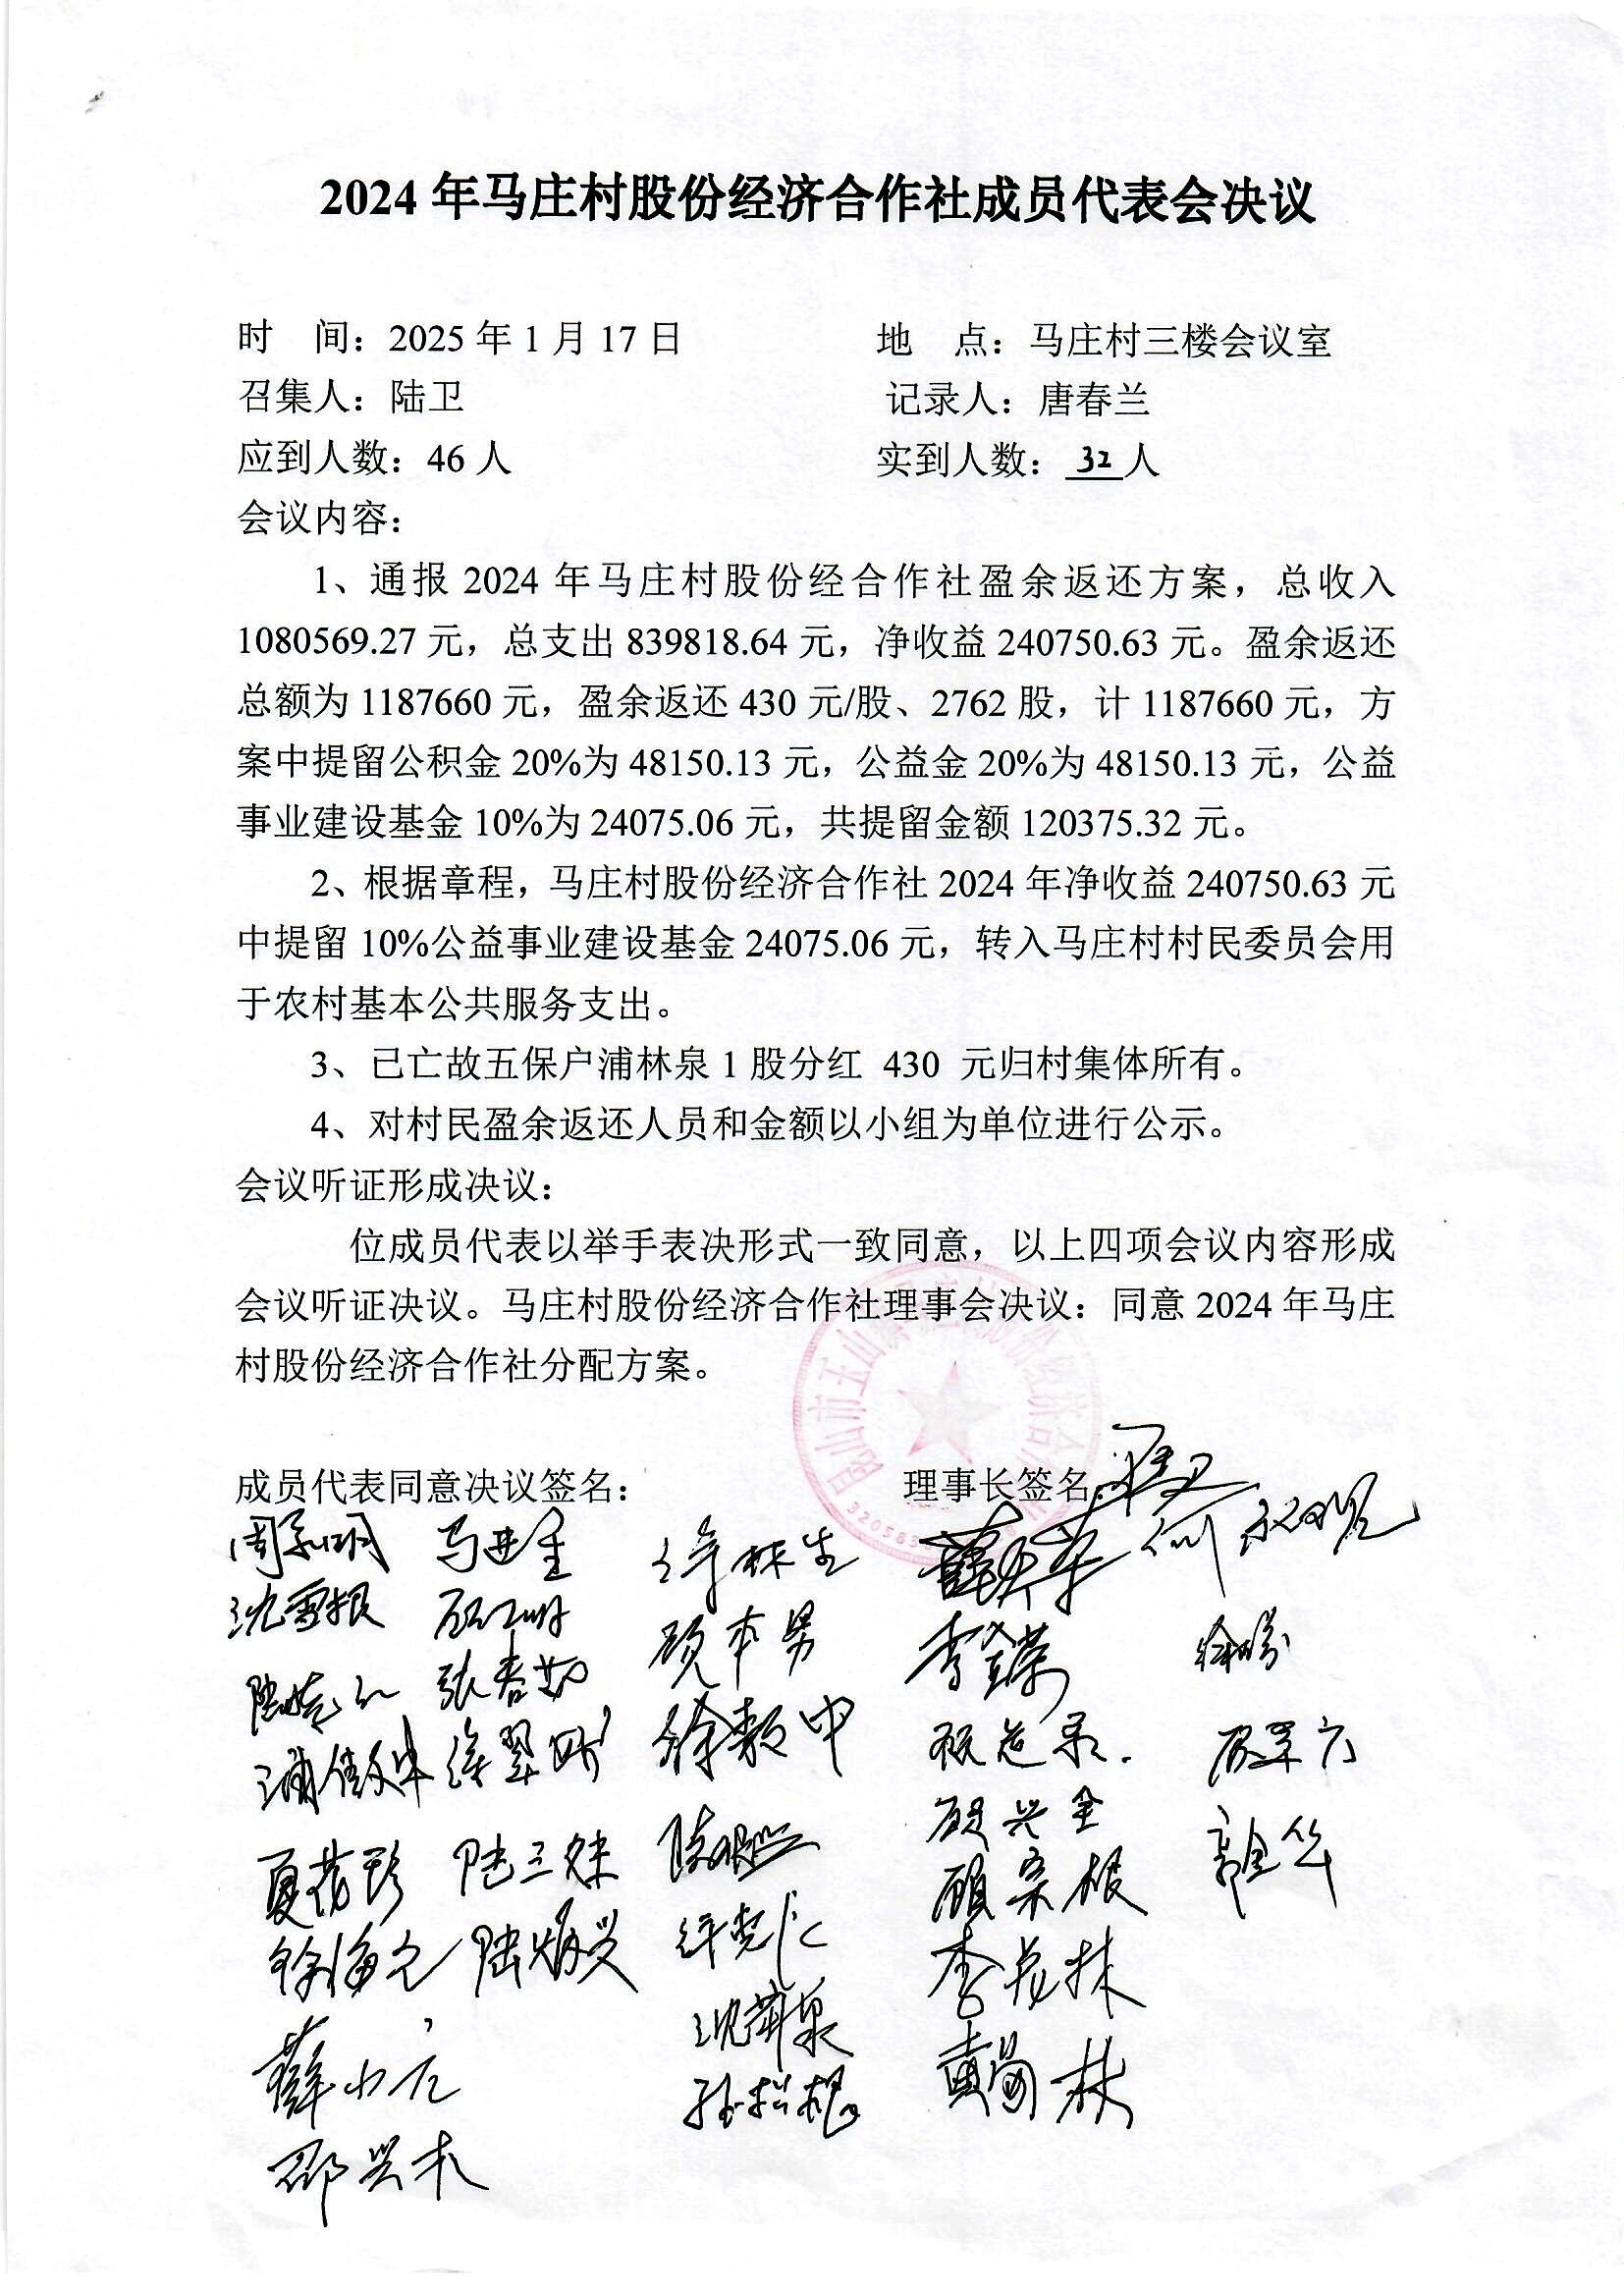 2024 年马庄村股份经济合作社成员代表会决议
时 间：2025 年 1 月 17 日 地 点：马庄村三楼会议室
召集人：陆卫 记录人：唐春兰
应到人数：46 人 实到人数：32人
会议内容：
1、通报 2024 年马庄村股份经合作社盈余返还方案，总收入
1080569.27 元，总支出 839818.64 元，净收益 240750.63 元。盈余返还
总额为 1187660 元，盈余返还 430 元/股、2762 股，计 1187660 元，方
案中提留公积金 20%为 48150.13 元，公益金 20%为 48150.13 元，公益
事业建设基金 10%为 24075.06 元，共提留金额 120375.32 元。
2、根据章程，马庄村股份经济合作社 2024 年净收益 240750.63 元
中提留 10%公益事业建设基金 24075.06 元，转入马庄村村民委员会用
于农村基本公共服务支出。
3、已亡故五保户浦林泉 1 股分红 430 元归村集体所有。
4、对村民盈余返还人员和金额以小组为单位进行公示。
会议听证形成决议：
位成员代表以举手表决形式一致同意，以上四项会议内容形成
会议听证决议。马庄村股份经济合作社理事会决议：同意 2024 年马庄
村股份经济合作社分配方案。
昆山市玉山镇
成员代表同意决议签名： 理事长签名：陆卫
马进金 徐林生
沈雪根 顾本男
张春
陆三妹 顾兴金
顾宗根
徐海元 李林
薛小
孙松根 黄林
邵兴